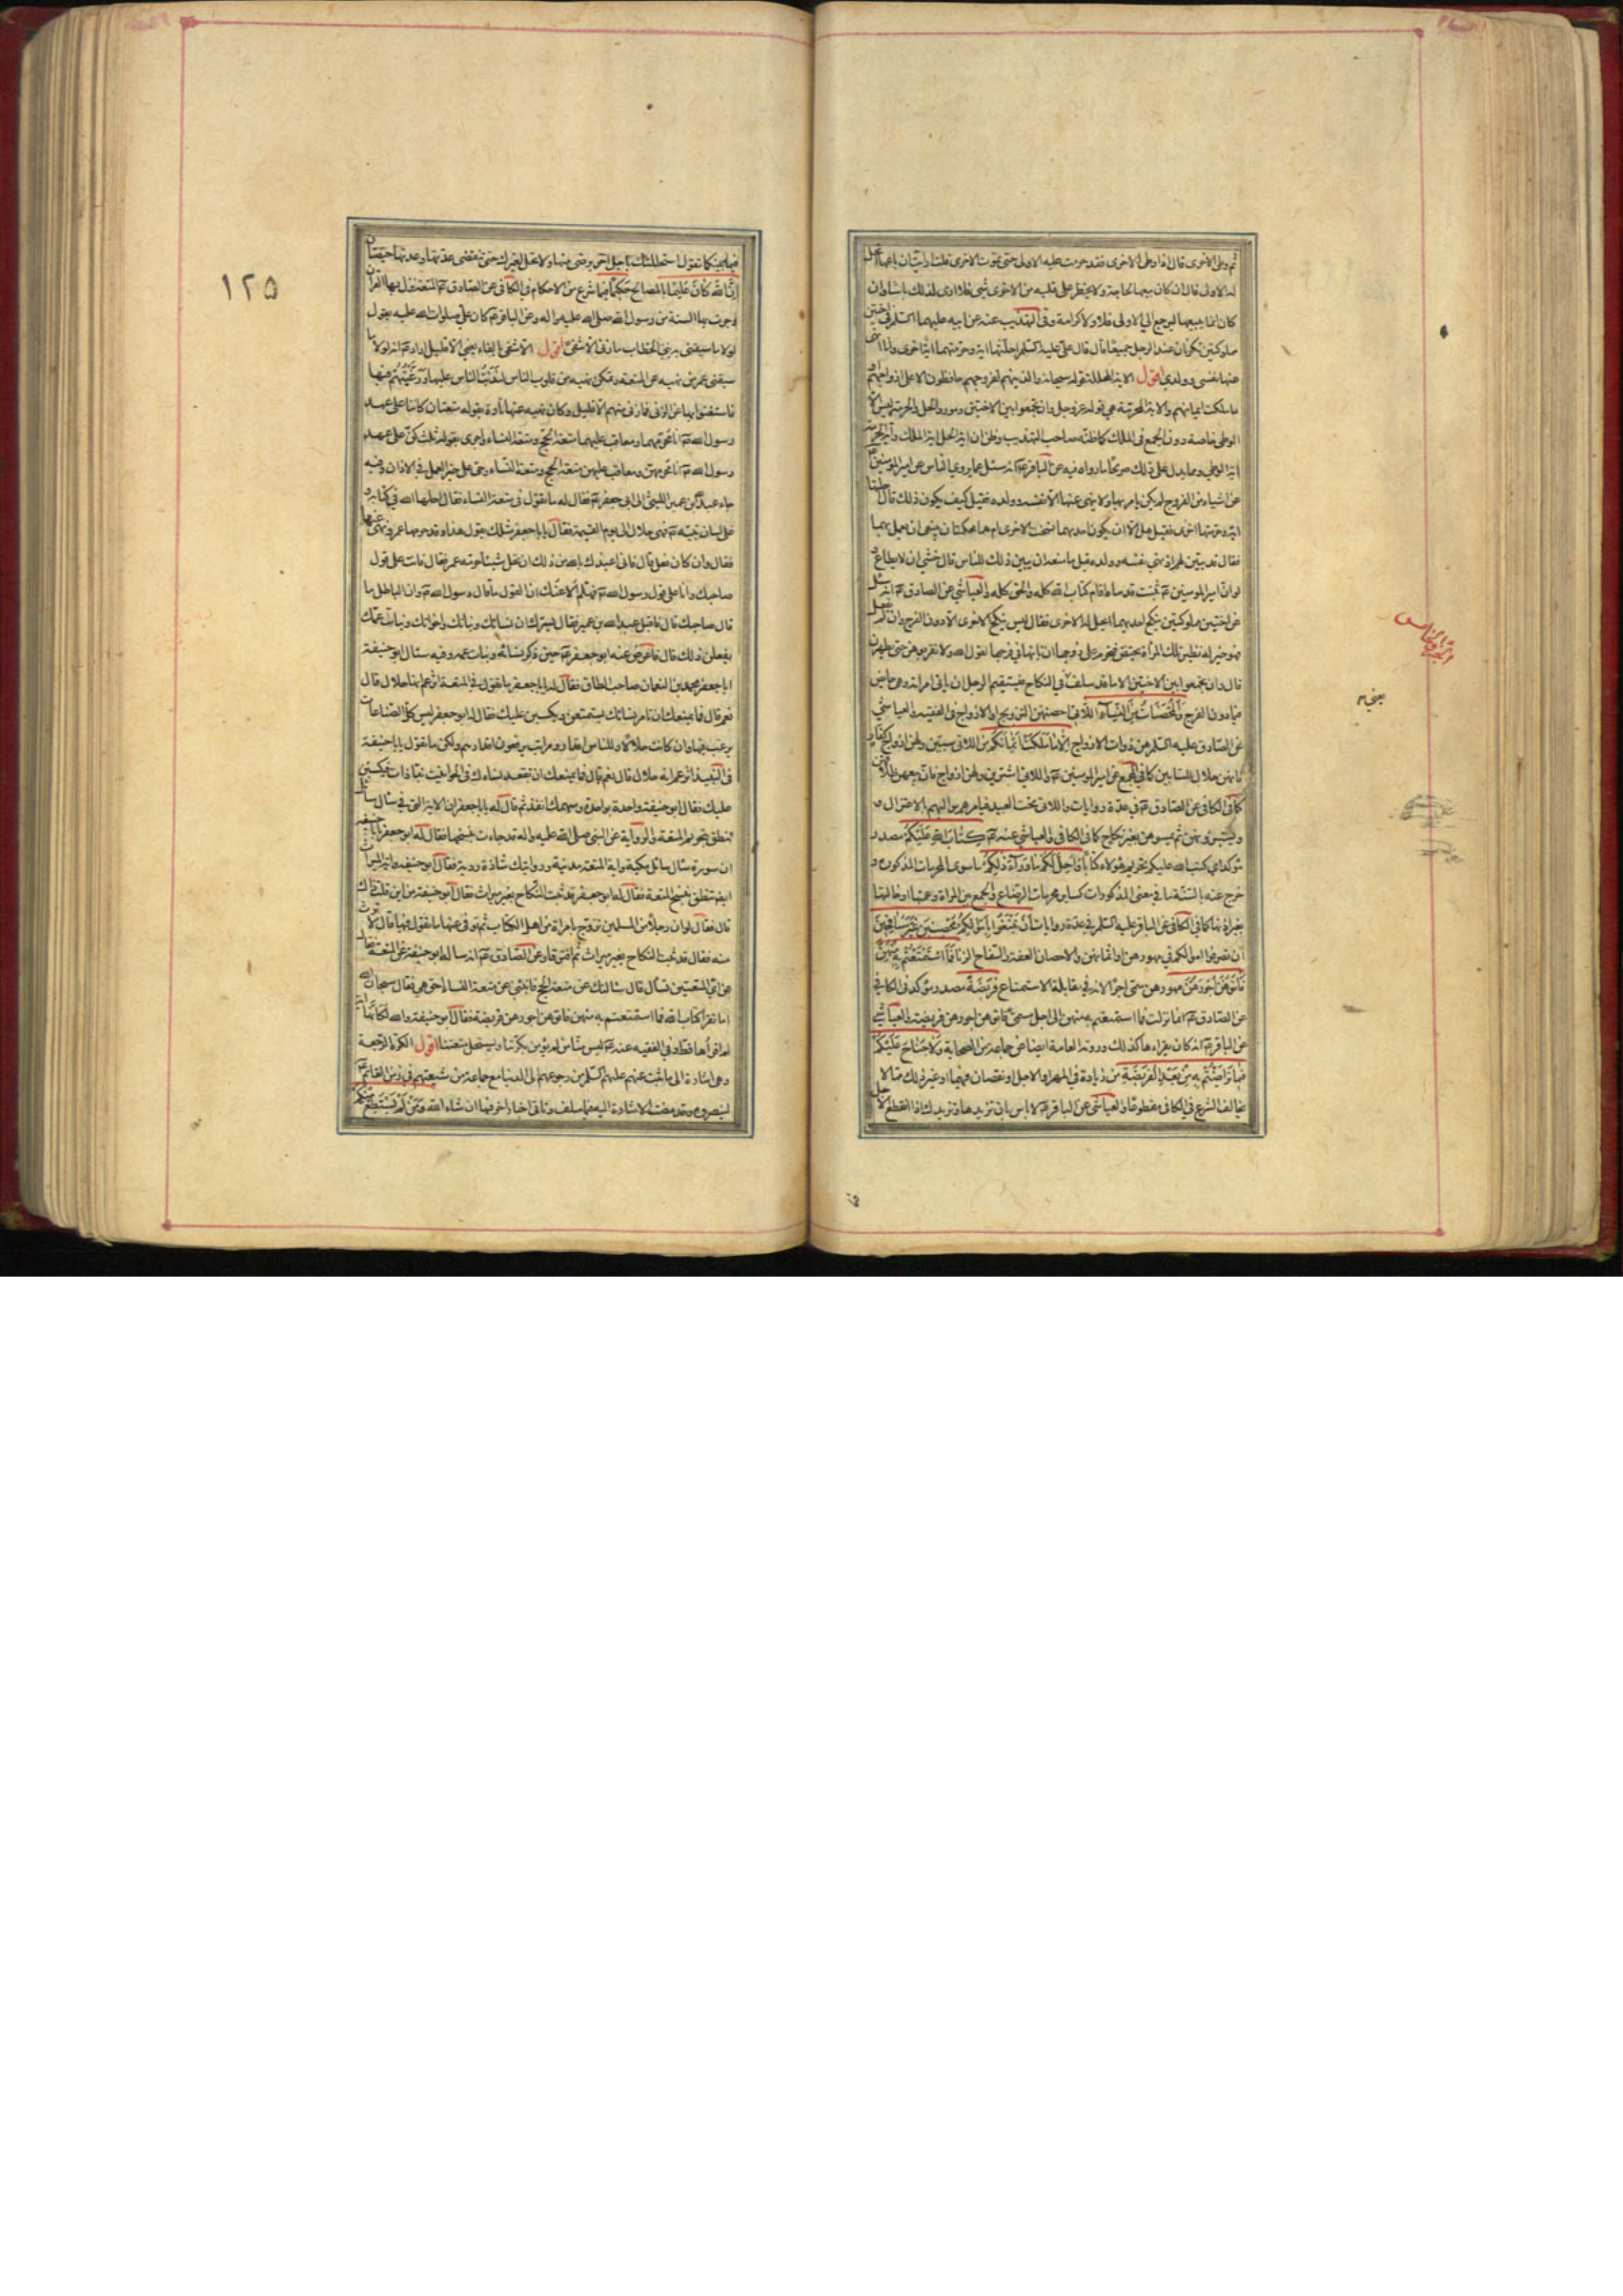 ثم وطى الاخرى قال اذا وطى الاخرى فقد حرمت عليه الاولى حتى تموت الاخرى قلت ارايت ان باعها اتحل
له الاولى قال ان كان يبيعها لحاجة ولا يخطر على قلبه من الاخرى شئ فلا ارى لذلك باسا وان
كان انما يبيعها ليرجع الى الاولى فلا ولا كرامة وفى التهذيب عنه عن ابيه عليهما السلم فى اختين
مملوكتين تكونان عند الرجل جميعا قال قال على عليه السلم احلتهما اية وحرمتهما اية اخرى وانا انهى
عنها نفسى وولدى اقول الاية المحللة قوله سبحانه والذينهم لفروجهم حافظون الا على ازواجهم او
ما ملكت ايمانهم والاية المحرمة هى قوله عز وجل وان تجمعوا بين الاختين ومورد الحل والحرمة ليس الا
الوطى خاصة دون الجمع فى الملك كما ظنه صاحب التهذيب وظن ان اية الحل اية الملك واية التحريم
اية الوطى ومما يدل على ذلك صريحا ما رواه فيه عن الباقر عم انه سئل عما يروى الناس عن امير المؤمنين عم
عن اشياء من الفروج لم يكن يامر بها ولا ينهى عنها الا نفسه وولده فقيل كيف يكون ذلك قال احلتها
اية وحرمتها اخرى فقيل هل الا ان يكون احديهما نسخت الاخرى ام هما محكمتان ينبغى ان يعمل بهما
فقال قد بين لهم اذ نهى نفسه وولده قيل ما منعه ان يبين ذلك للناس قال خشى ان لا يطاع
لو ان امير المؤمنين عم ثبتت قدماه اقام كتاب الله كله والحق كله والعياشى عن الصادق عم انه سئل
عن اختين مملوكتين ينكح احديهما ايحل له الاخرى فقال ليس ينكح الاخرى الا دون الفرج وان لم يفعل
فهو خير له نظير تلك المراة تحيض فتحرم على زوجها ان ياتيها فى فرجها لقول الله ولا تقربوهن حتى يطهرن
قال وان تجمعوا بين الاختين الا ما قد سلف فى النكاح فيستقيم الرجل ان ياتى امراته وهى حائض
فيما دون الفرج والمحصنات من النساء اللاتى احصنهن التزويج او الازواج فى الفقيه والعياشى
عن الصادق عليه السلم هن ذوات الازواج الا ما ملكت ايمانكم من اللاتى سبين ولهن ازواج كفار
فانهن حلال للسابين كما فى المجمع عن امير المؤمنين عم واللاتى اشترين ولهن ازواج فان بيعهن طلاقهن
كما فى الكافى عن الصادق عم فى عدة روايات واللاتى تحت العبيد فيامرهم مواليهم بالاعتزال
ويستبرؤنهن ثم يمسوهن بغير نكاح كما فى الكافى والعياشى عنه عم كتاب الله عليكم مصدر
مؤكد اى كتب الله عليكم تحريم هؤلاء كتابا واحل لكم ما وراء ذلكم ما سوى المحرمات المذكورة و
خرج عنه بالسنة ما فى معنى المذكورات كسائر محرمات الرضاع والجمع بين المراة وعمتها او خالتها
بغير اذنها كما فى الكافى عن الباقر عليه السلم فى عدة روايات ان تبتغوا باموالكم محصنين غير مسافحين
ان تصرفوا اموالكم فى مهورهن او اثمانهن والاحصان العفة والسفاح الزنا فما استمتعتم به منهن
فاتوهن اجورهن مهورهن سمى اجرا لانه فى مقابلة الاستمتاع فريضة مصدر مؤكد فى الكافى
عن الصادق عم انما نزلت فما استمتعتم به منهن الى اجل مسمى فاتوهن اجورهن فريضة والعياشى
عن الباقر عم انه كان يقراها كذلك وروته العامة ايضا عن جماعة من الصحابة ولا جناح عليكم
فيما تراضيتم به من بعد الفريضة من زيادة فى المهر او الاجل او نقصان فيهما او غير ذلك مما لا
يخالف الشرع فى الكافى مقطوعا والعياشى عن الباقر عم لا باس بان تزيدها وتزيدك اذا انقطع الاجل
فيما بينكما تقول استحللتك باجل اخر برضى منها ولا تحل لغيرك حتى تنقضى عدتها وعدتها حيضتان
ان الله كان عليما بالمصالح حكيما فيما شرع من الاحكام فى الكافى عن الصادق عم المتعة نزل بها القران
وجرت بها السنة من رسول الله صلى الله عليه واله وعن الباقر عم كان على صلوات الله عليه يقول
لولا ما سبقنى به بنى الخطاب ما زنى الا شقى اقول الا شفى بالفاء يعنى الا قليل اراد عم انه لولا ما
سبقنى عمر من نهيه عن المتعة وتمكن نهيه من قلوب الناس لندبت الناس عليها ورغبتهم فيها
فاستغنوا بها عن الزنى فما زنى منهم الا قليل وكان نهيه عنها تارة بقوله متعتان كانتا على عهد
رسول الله ص انا محرمهما ومعاقب عليهما متعة الحج ومتعة النساء واخرى بقوله ثلث كن على عهد
رسول الله ص انا محرمهن ومعاقب عليهن متعة الحج ومتعة النساء وحى على خير العمل فى الاذان وفيه
جاء عبد الله بن عمير الليثى الى ابى جعفر عم فقال له ما تقول فى متعة النساء فقال احلها الله فى كتابه و
على لسان نبيه ص فهى حلال الى يوم القيمة فقال يا ابا جعفر مثلك يقول هذا وقد حرمها عمر ونهى عنها
فقال وان كان فعل قال فانى اعيذك بالله من ذلك ان تحل شيئا حرمه عمر فقال فانت على قول
صاحبك وانا على قول رسول الله ص فهلم الاعنك ان القول ما قال رسول الله ص وان الباطل ما
قال صاحبك قال فاقبل عبد الله بن عمير فقال يسرك ان نسائك وبناتك واخواتك وبنات عمك
يفعلن ذلك قال فاعرض عنه ابو جعفر عم حين ذكر نسائه وبنات عمه وفيه سئال ابو حنيفة
ابا جعفر محمد بن النعمان صاحب الطاق فقال له يا ابا جعفر ما تقول فى المتعة اتزعم انها حلال قال
نعم قال فما يمنعك ان تامر نسائك يستمتعن ويكسبن عليك فقال له ابو جعفر ليس كل الصناعات
يرغب فيها وان كانت حلالا وللناس اقدار ومراتب يرفعون اقدارهم ولكن ما تقول يا ابا حنيفة
فى النبيذ اتزعم انه حلال قال نعم قال فما يمنعك ان تقعد نساءك فى الحوانيت نباذات فيكسبن
عليك فقال ابو حنيفة واحدة بواحدة وسهمك انفذ ثم قال له يا ابا جعفر ان الاية التى فى سئال سائل
تنطق بتحريم المتعة والرواية عن النبى صلى الله عليه واله قد جاءت بنسخها فقال له ابو جعفر يا ابا حنيفة
ان سورة سئال سائل مكية واية المتعة مدنية وروايتك شاذة ردية فقال ابو حنيفة واية الميراث
ايضا تنطق بنسخ المتعة فقال له ابو جعفر قد ثبت النكاح بغير ميراث فقال ابو حنيفة من اين قلت ذاك
قال فقال لو ان رجلا من المسلمين تزوج بامراة من اهل الكتاب ثم توفى عنها ما تقول فيها قال لا ترث
منه فقال قد ثبت النكاح بغير ميراث ثم افترقا وعن الصادق عم انه ساله ابو حنيفة عن المتعة فقال
عن اى المتعتين تسال قال سالتك عن متعة الحج فانبئنى عن متعة النساء احق هى فقال سبحان الله
اما تقرا كتاب الله فما استمتعتم به منهن فاتوهن اجورهن فريضة فقال ابو حنيفة والله لكانها اية
لم اقراها قط وفى الفقيه عنه عم ليس منا من لم يؤمن بكرتنا ويستحل متعتنا اقول الكرة الرجعة
وهى اشارة الى ما ثبت عنهم عليهم السلم من رجوعهم الى الدنيا مع جماعة من شيعتهم فى زمن القائم عم
لينصروه وقد مضت الاشارة اليه فيما سلف وتاتى اخبار اخر فيها ان شاء الله ومن لم يستطع منكم
١٢٥